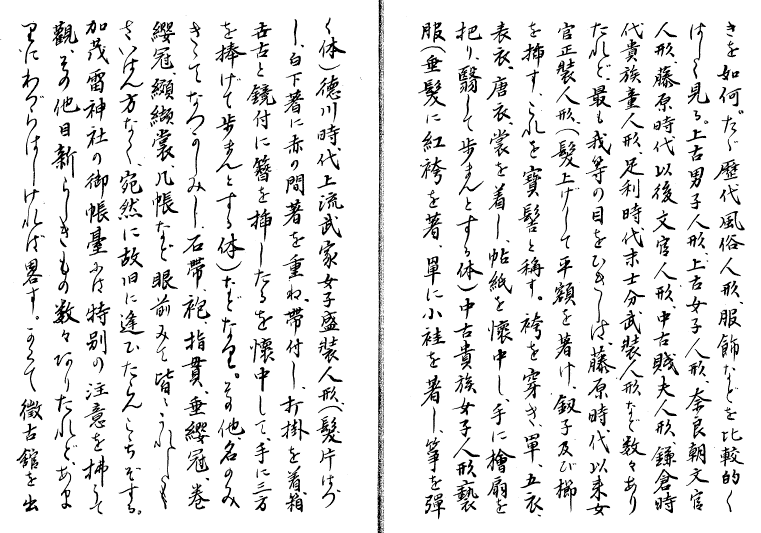 きを如何。だゞ歴代風俗人形、服飾などを比較的く
はしく見る。上古男子人形、上古女子人形、奈良朝文官
人形、藤原時代以後文官人形、中古賤夫人形、鎌倉時
代貴族童人形、足利時代末士分武装人形など数々あり
たれど、最も我等の目をひきしは、藤原時代以来女
官正装人形、(髪上げして平額を着け、釵子及び櫛
を挿す、これを寳髻と称す。袴を穿き、單、五衣、
表衣、唐衣、裳を着し、帖紙を懐中し、手に檜扇を
把り、翳して歩まんとする体)中古貴族女子人形褻
服(垂髪に紅袴を著、單に小袿を著し、箏を彈
く体)徳川時代上流武家女子盛装人形、(髪片はづ
し、白下著に赤の間著を重ね、帯付し、打掛を着、箱
せこと鏡付に簪を挿したるを懐中して、手に三方
を捧げて歩まんとする体)などなり。その他、名のみ
きゝてなつかしみし石帯、袍、指貫、垂纓冠、巻
纓冠、纐纈裳、几帳など眼前みて皆々うれしとも
さいはん方なく、宛然に故旧に逢ひたらんこゝちぞする。
加茂雷神社の御帳臺には特別の注意を拂うて
觀、その他目新らしきもの数々ありたれど、あま
りにわづらはしければ畧す。かくて徴古館を出